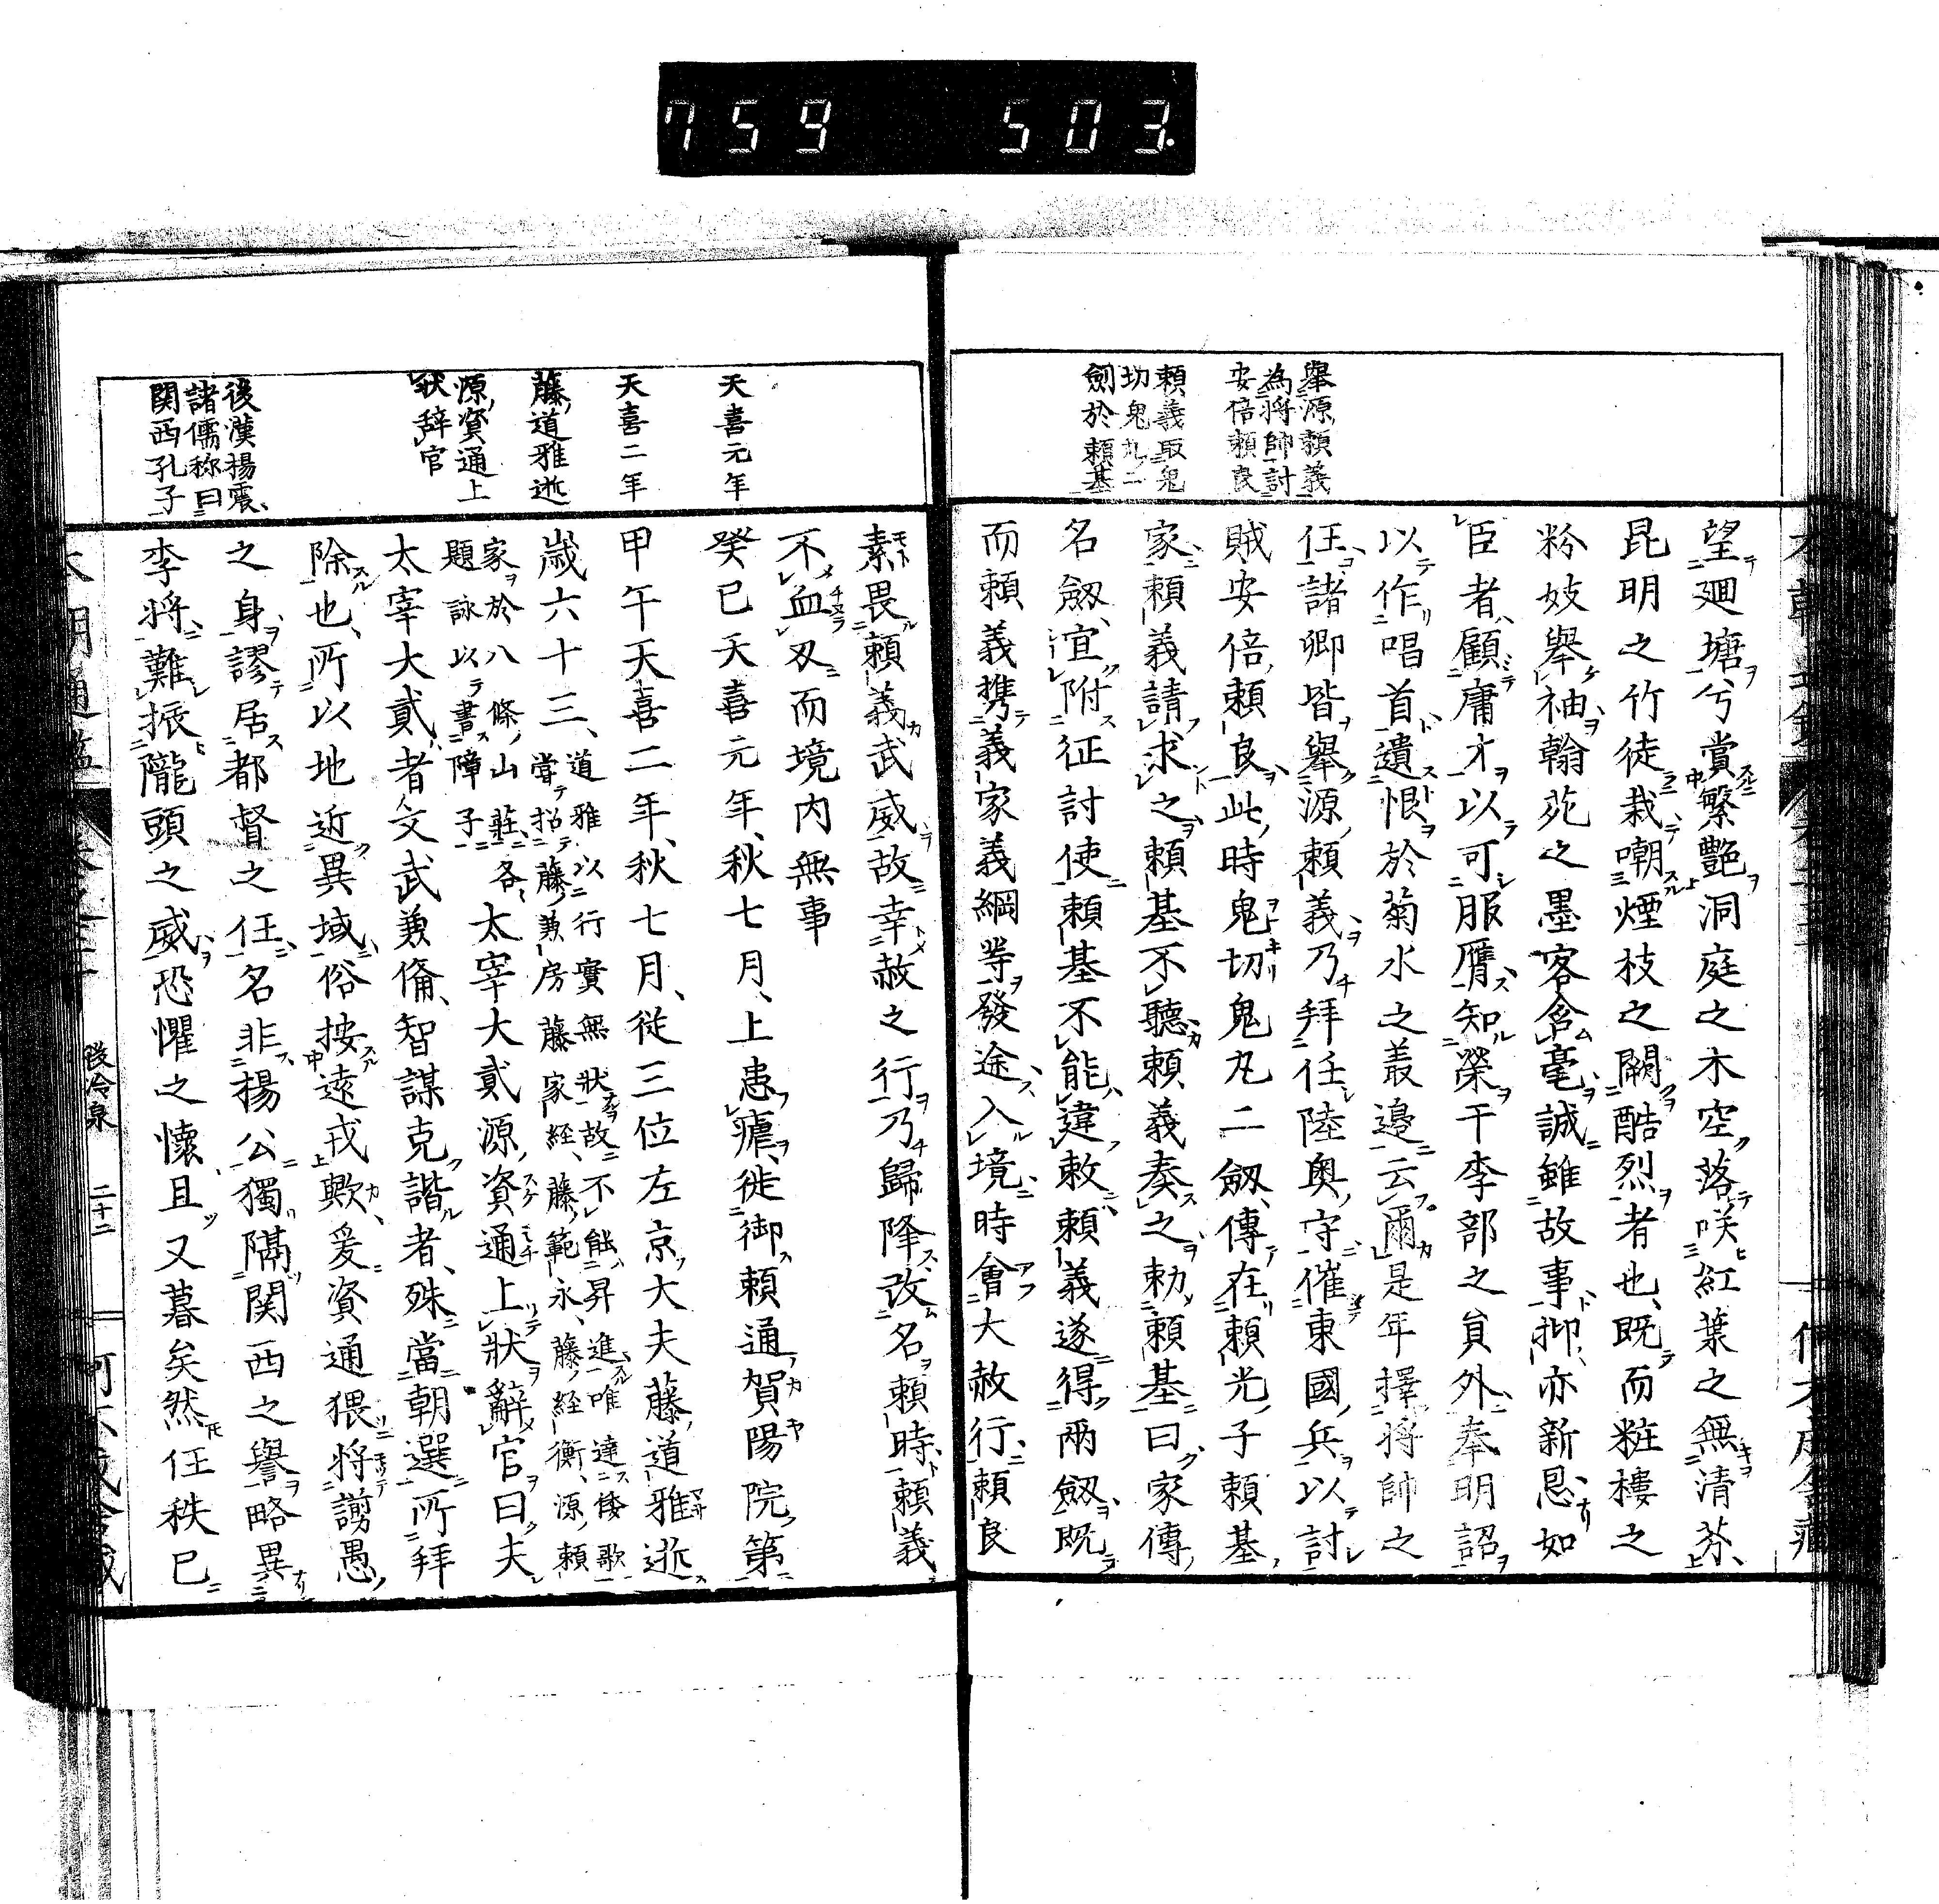 759 503.
舉源頼義
為將帥討
安倍頼良
頼義取鬼
切鬼丸二
劍於頼基
望廻塘兮賞繁艷洞庭之木空落咲紅葉之無清芬
昆明之竹徒栽嘲煙枝之闕酷烈者也既而粧樓之
粉妓舉袖翰苑之墨客含毫誠雖故事抑亦新恩如
臣者顧庸才以可服膺知榮干李部之貟外奉明詔
以作唱首遺恨於菊水之叢邊云爾是年擇將帥之
任諸卿皆舉源頼義乃拜任陸奥守催東國兵以討
賊安倍頼良此時鬼切鬼丸二劔傳在頼光子頼基
家頼義請求之頼基不聽頼義奏之勅頼基曰家傳
名劔宜附征討使頼基不能違敕頼義遂得兩劔既
而頼義携義家義綱等發途入境時會大赦行頼良
天喜元年
天喜二年
藤道雅逝
源資通上
狀辞官
後漢揚震
諸儒称曰
関西孔子
素畏頼義武威故幸赦之行乃歸降改名頼時頼義
不血刃而境内無事
癸巳天喜元年秋七月上患瘧徙御頼通賀陽院第
甲午天喜二年秋七月從三位左京大夫藤道雅逝
歳六十三道雅以行實無狀故不能昇進唯達倭歌
嘗招藤兼房藤家經藤範永藤經衡源頼
家於八條山莊各
題詠以書障子
太宰大貳源資通上狀辭官曰夫
太宰大貳者文武兼備智謀克諧者殊當朝選所拜
除也所以地近異域俗按遠戎歟爰資通猥將謭愚
之身謬居都督之任名非揚公獨隔関西之譽略異
李將難振隴頭之威恐懼之懷且又暮矣然任秩已
後冷泉 二十二